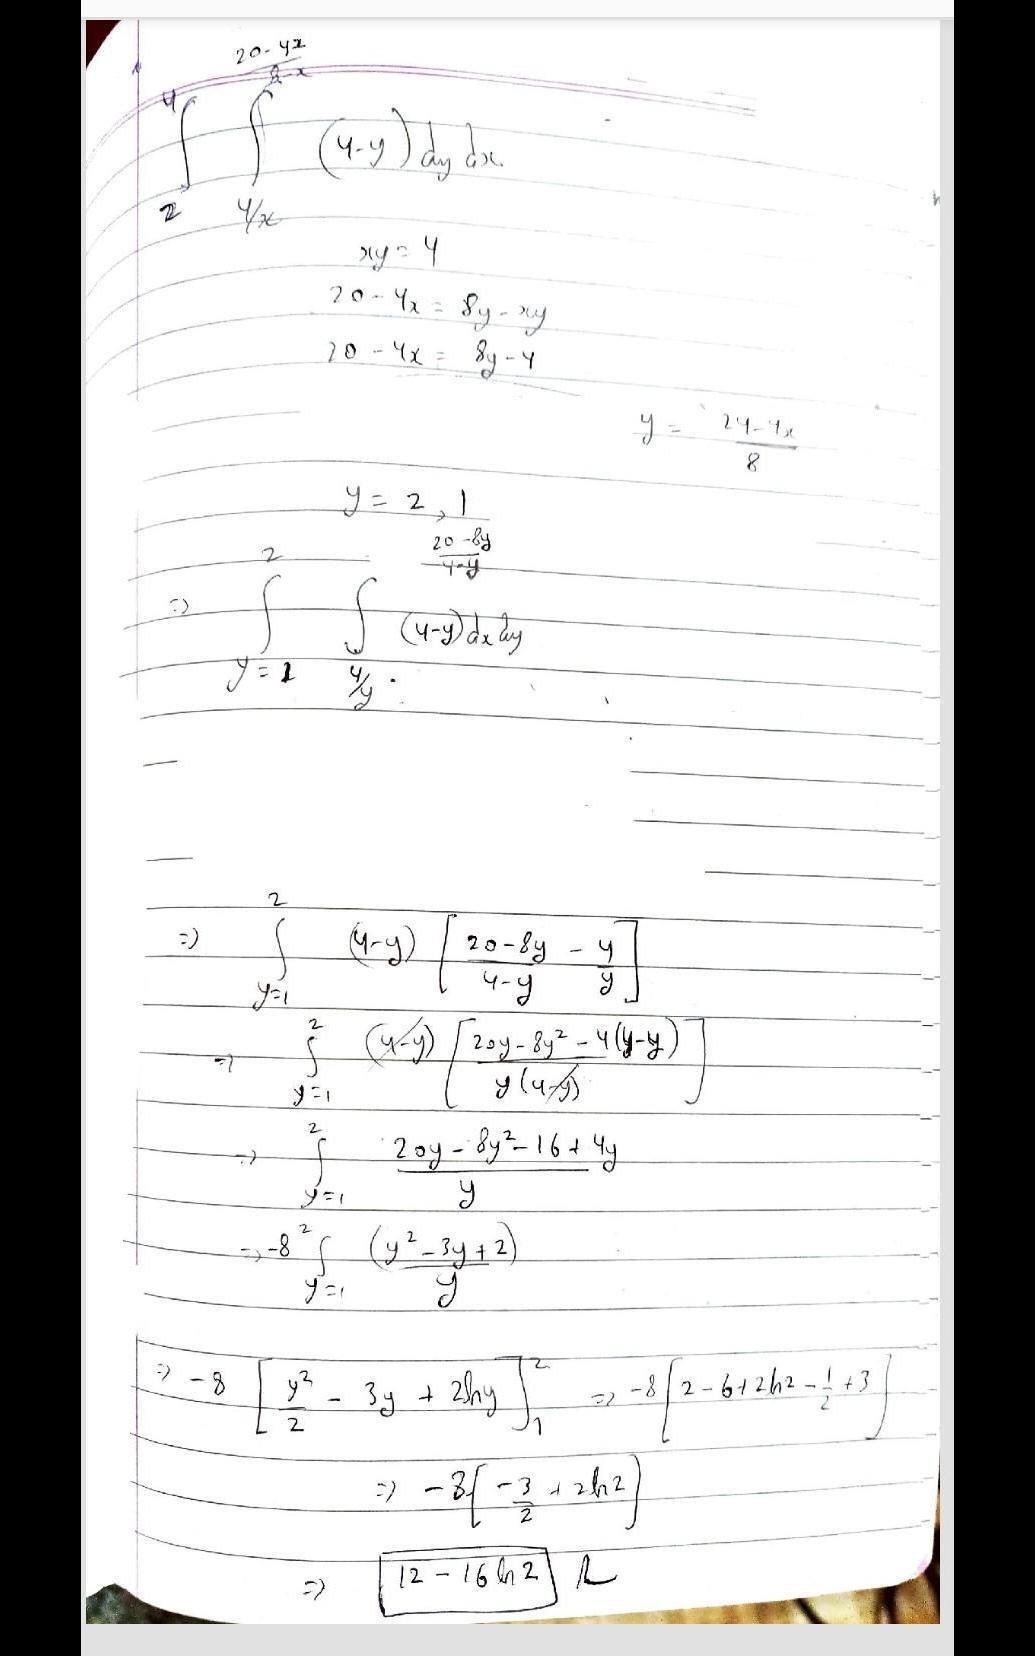 ∫₂⁴ ∫_{4/x}^{(20-4x)/(8-x)} (4-y) dy dx
xy = 4
20 - 4x = 8y - xy
20 - 4x = 8y - 4
y = (24-4x)/8
y = 2, 1
=> ∫_{y=1}^{2} ∫_{4/y}^{(20-8y)/(4-y)} (4-y) dx dy
=> ∫_{y=1}^{2} (4-y) [ (20-8y)/(4-y) - 4/y ]
=> ∫_{y=1}^{2} (4-y) [ (20y - 8y² - 4(4-y)) / (y(4-y)) ]
=> ∫_{y=1}^{2} (20y - 8y² - 16 + 4y)/y
=> -8 ∫_{y=1}^{2} (y² - 3y + 2)/y
=> -8 [ y²/2 - 3y + 2lny ]₁² => -8 [ 2 - 6 + 2ln2 - 1/2 + 3 ]
=> -8 [ -3/2 + 2ln2 ]
=> 12 - 16 ln 2